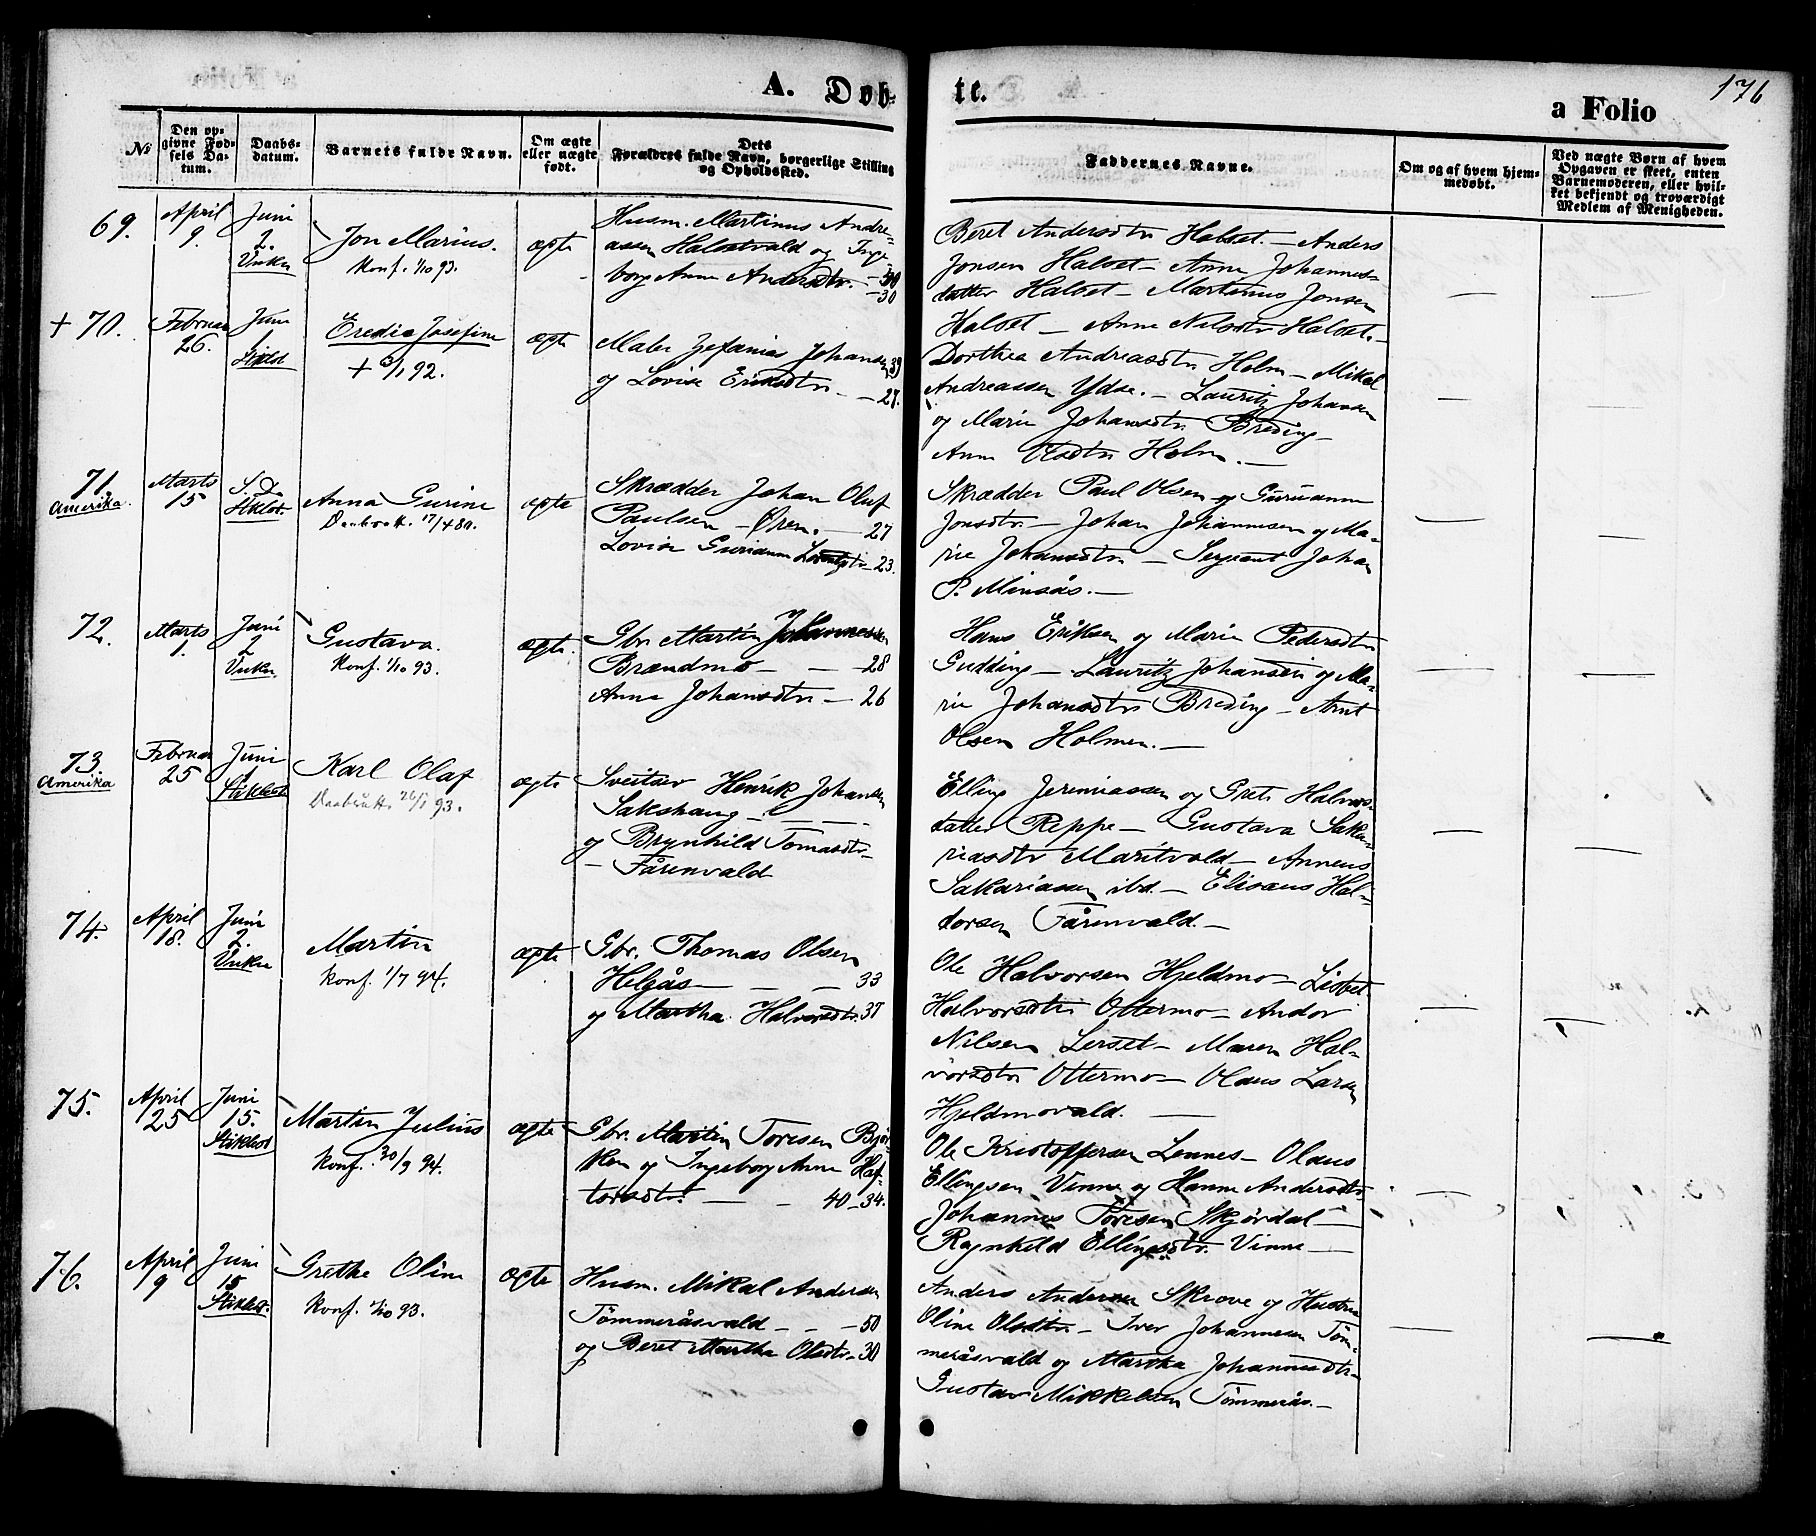 176
A. Døb-
te.
a Folio
No
Den op-
givne Fød-
sels Da-
tum.
Daabs-
datum.
Barnets fulde Navn.
Om ægte
eller uægte
født.
Dets
Forældres fulde Navn, borgerlige Stilling
og Opholdssted.
Faddernes Navne.
Om og af hvem hjem-
medøbt.
Ved uægte Børn af hvem
Opgaven er skeet, enten
Barnemoderen, eller hvil-
ket bekjendt og troværdigt
Medlem af Menigheden.
69.
April
9.
Juni
2.
Vuku
Jon Marius.
Konf. 1/10 93.
ægte
Husm. Martinus Andre-
assen Halsetvald og Inge-
borg Anna Andersdtr. - 30
- 30
Beret Andersdtr Halset. - Anders
Jonsen Halset - Anne Johannes-
datter Halset - Martinus Jonsen
Halset - Anne Nilsdtr Halset. -
+ 70.
Februar
26.
Juni
Stiklest
Eredia Josefine
+ 3/1 92.
ægte
Maler Zefanias Johansen 39
og Lovise Eriksdtr - 27.
Dorthea Andreasdtr Holm - Mikal
Andreassen Ydse. - Lauritz Johansen
og Marie Johansdtr Breding -
Anne Olsdtr Holm. -
71.
Amerika.
Marts
15
S. D.
Stiklest.
Anna Gurine
Daabsatt. 17/4 89.
ægte
Skrædder Johan Oluf
Paulsen - Øren. - 27
Lovise Gurianna Lorentzdtr - 23.
Skrædder Paul Olsen og Gurianna
Jonsdtr. - Johan Johannesen og Ma-
rie Johansdtr - Sergeant Johan
P. Minsås. -
72.
Marts
1.
Juni
2
Vuku
Gustava.
Konf. 1/10 93.
ægte.
Gbr. Martin Johannessen
Brændmo - - 28
Anna Johansdtr - 26
Hans Eriksen og Marie Pedersdtr
Gudding - Lauritz Johansen og Ma-
rie Johansdtr Breding - Arnt
Olsen Holmen. -
73
Amerika
Februar
25
Juni
Stiklest
Karl Olaf
Daabsatt. 26/1 93.
ægte
Sveitser Henrik Johansen
Sakshaug - - -
og Brynhild Tomasdtr -
- Fårenvald
Elling Jeremiassen og Grete Halvors-
datter Reppe - Gustava Saka-
riasdtr Maritvald - Anneus
Sakariassen ibd. - Elisæus Hal-
dorsen Fårenvald. -
74.
April
18.
Juni
2.
Vuku
Martin
Konf. 1/7 94.
ægte
Gbr. Thomas Olsen
Helgås - - - 33
og Martha Halvorsdtr. 37
Ole Halvorsen Hjeldmo - Lisbet
Halvorsdtr Ottermo - Andor
Nilsen Lerset - Maren Hal-
vorsdtr Ottermo - Olaus Larsen
Hjeldmovald. -
75.
April
25
Juni
15.
Stiklest
Martin Julius
Konf. 30/9 94.
ægte
Gbr. Martin Toresen Bjør-
ken og Ingeborg Anna Haf-
torsdtr. - - 40 - 34.
Ole Kristoffersen Lennes - Olaus
Ellingsen Vinne og Hanna Andersdtr
Johannes Toresen Skjørdal -
Ragnhild Ellingsdtr. Vinne -
76.
April
9
Juni
15
Stiklest.
Grethe Oline
Konf. 1/10 93.
ægte
Husm. Mikal Andersen
Tømmeråsvald - - - 50
og Beret Martha Olsdtr - 30
Anders Andersen Skrove og Hustru
Oline Olsdtr - Iver Johannesen Tøm-
meråsvald og Martha Johannesdtr -
Gustav Mikkelsen Tømmerås. -